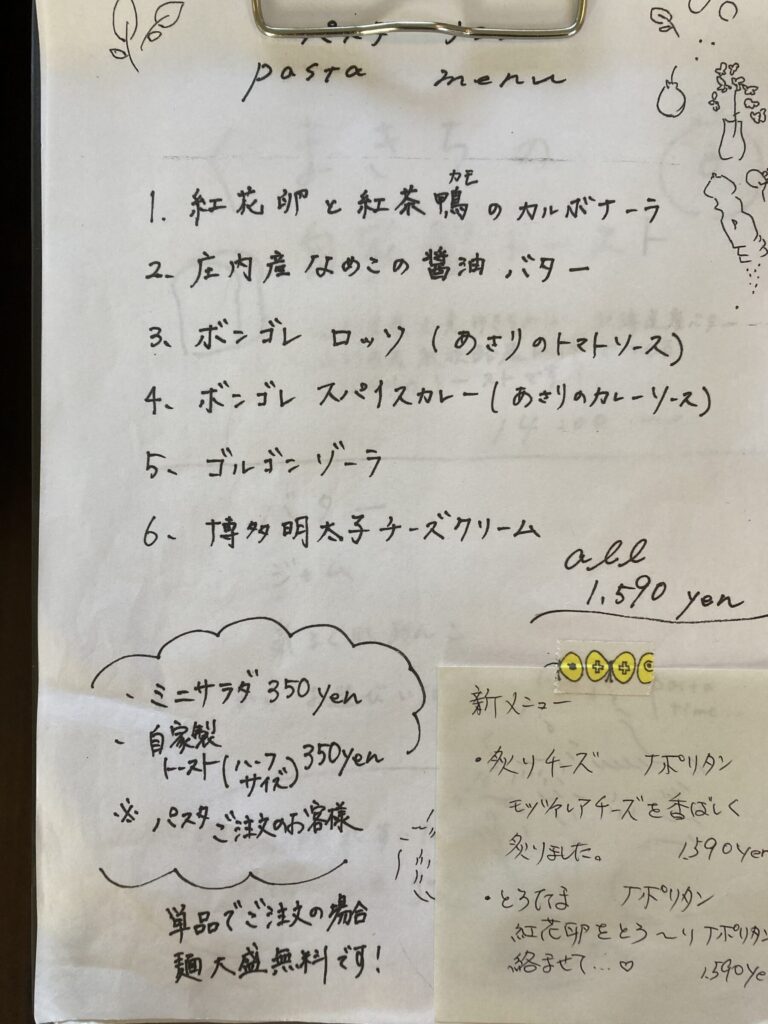 pasta menu
1. 紅花卵と紅茶鴨のカルボナーラ
カモ
2. 庄内産なめこの醤油バター
3. ボンゴレ ロッソ (あさりのトマトソース)
4. ボンゴレ スパイスカレー (あさりのカレーソース)
5. ゴルゴンゾーラ
6. 博多明太子チーズクリーム
all
1,590 yen
・ミニサラダ 350yen
・自家製
トースト(ハーフサイズ) 350yen
※ パスタご注文のお客様
単品でご注文の場合
麺大盛無料です!
新メニュー
・炙りチーズ ナポリタン
モッツァレアチーズを香ばしく
炙りました。 1590yen
・とろたま ナポリタン
紅花卵をとろ〜りナポリタン
絡ませて…♡ 1,590ye